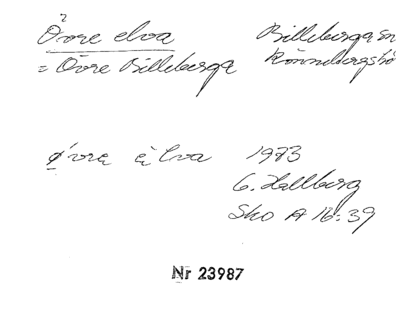 Övre elva Billeberga sn
= Övre Billeberga Rönnebergs hd
övrę ȩ̀ lva 1973
G. Hallberg
Sko A 16:39
Nr 23987